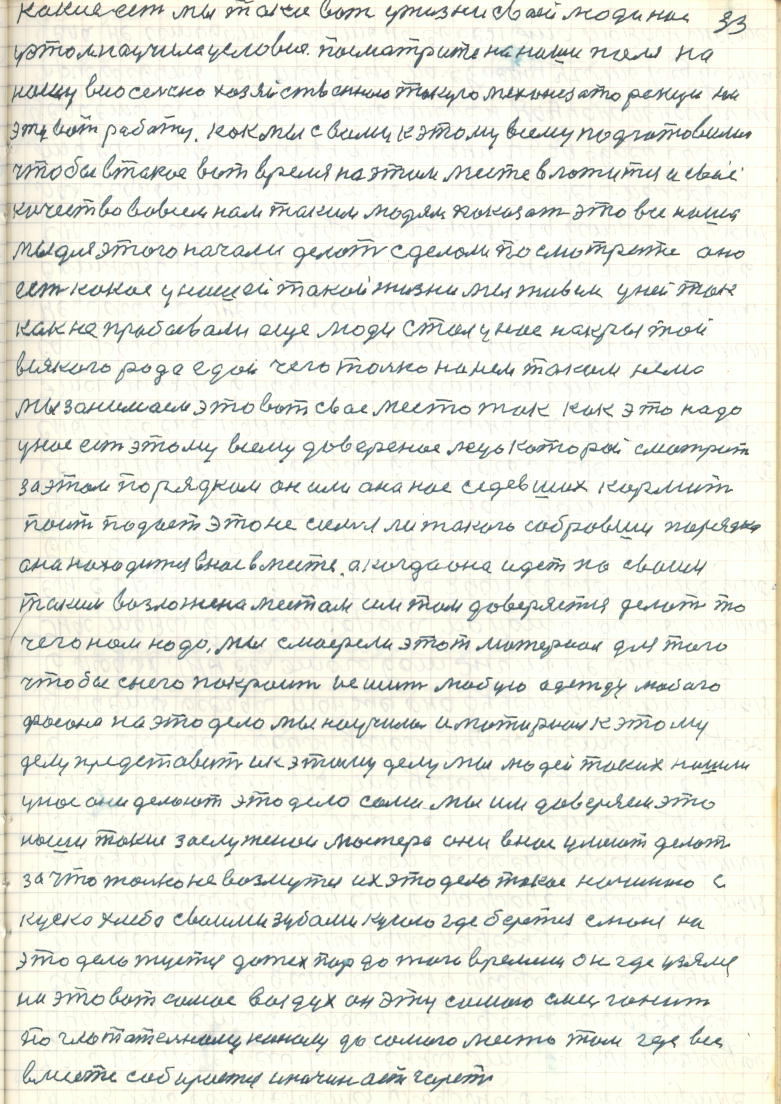 33
какие ест мы такие вот ужизни своей люди нас
этом научила условия. посмотрите на наши поля на
нашу всю селско хозяйственною такую на
эту вот работу. как мы с вами к этому всему подготовилис
чтобы втакое вот время на этом месте вложится и своё
качество вовсем нам таким людям показат это все наша
мы для этого начали делат сделали посмотрите оно
ест какое унашей такой жизни мы живем уней так
как не пробовали еще люди стол унас накрытой
всякого рода едой чего толко на нем таком нема
мы занимаем это вот свае место так как это надо
унас ест этому всему довереное лецо которой смотрит
за этом порядком он или она нас седевших кормит
поит подает это не семя ли такого собравши порядка
она находится внас вместе. а когда она идет по своим
таким возложена местам им там доверяется делат то
чего нам надо. мы смаерели этот материал для того
чтобы снего покроит и сшит любую одежду любого
фасона на это дело мы научилис и матирял к этому
делу представит и к этому делу мы людей таких нашли
унас они делают это дело сами. мы им доверяем это
наши такие заслуженои мастера они внас умеют делат
за что толко не возмутся их это дело такое начиною с
куска хлеба своими зубами кусаю где берется слюна на
это дело жуется до тех пор до того времени он где узялся
на это вот самое воздух он эту самаю смес гонит
по глотателному каналу до самого места там где все
вместе собирается и начинает гарет